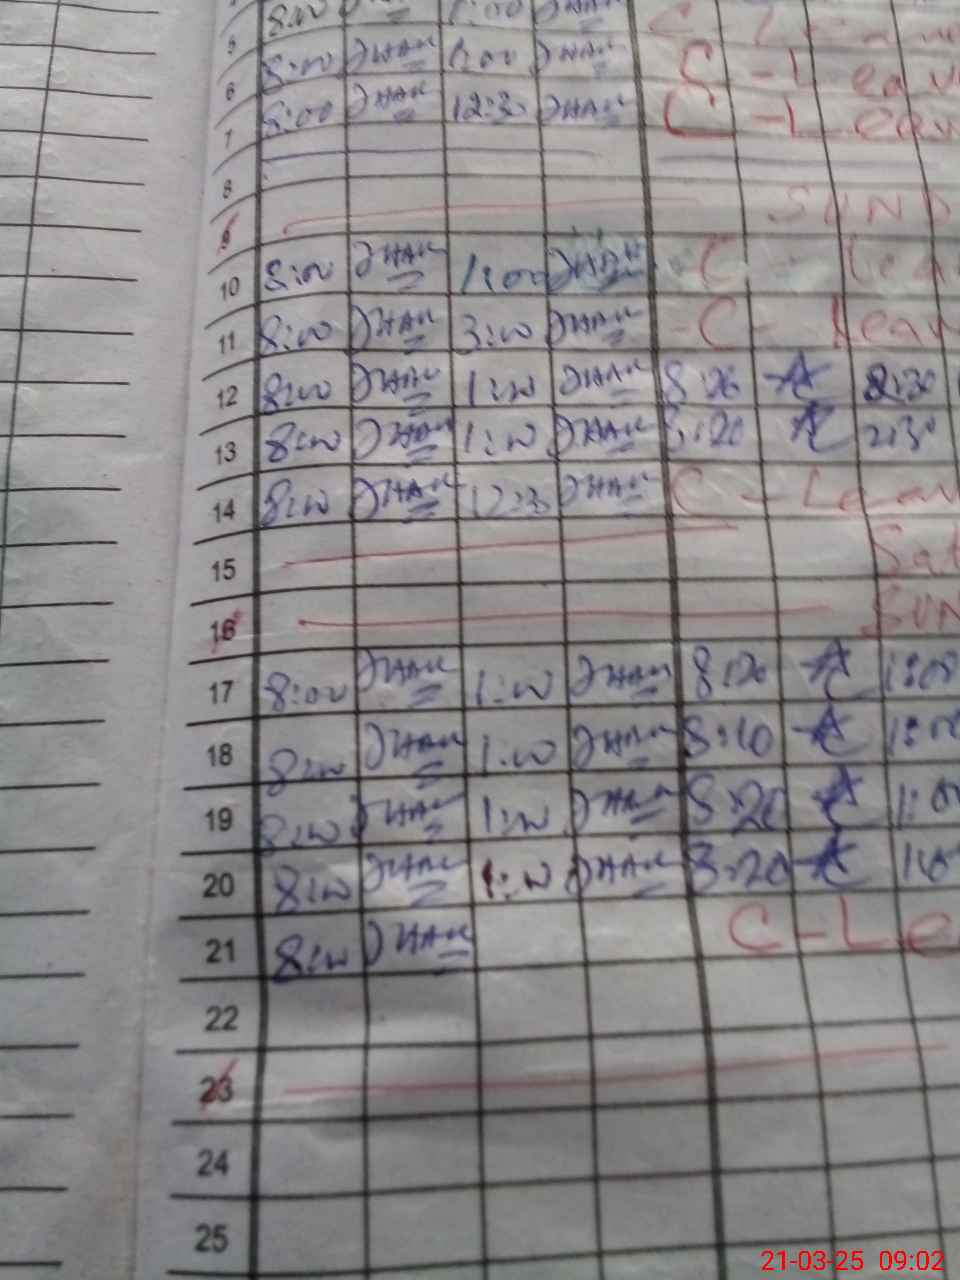 8:00 1:00 C Leave
5 8:00 JHAN 1:00 JHAN C - Leav
6 8:00 JHAN 12:3 JHAN C - Leav
7
8
9 SUND
10 8:00 JHAN 1:00 JHAN C - Lea
11 8:00 JHAN 3:00 JHAN - C - Leav
12 8:00 JHAN 1:00 JHAN 8:20 2:30
13 8:00 JHAN 1:00 JHAN 8:20 2:30
14 8:00 JHAN 12:3 JHAN C - Leav
15 Sat
16 SUN
17 8:00 JHAN 1:00 JHAN 8:20 1:00
18 8:00 JHAN 1:00 JHAN 8:10 1:00
19 8:00 JHAN 1:00 JHAN 8:20 1:00
20 8:00 JHAN 1:00 JHAN 8:20 1:0
21 8:00 JHAN C - Le
22
23
24
25
21-03-25 09:02